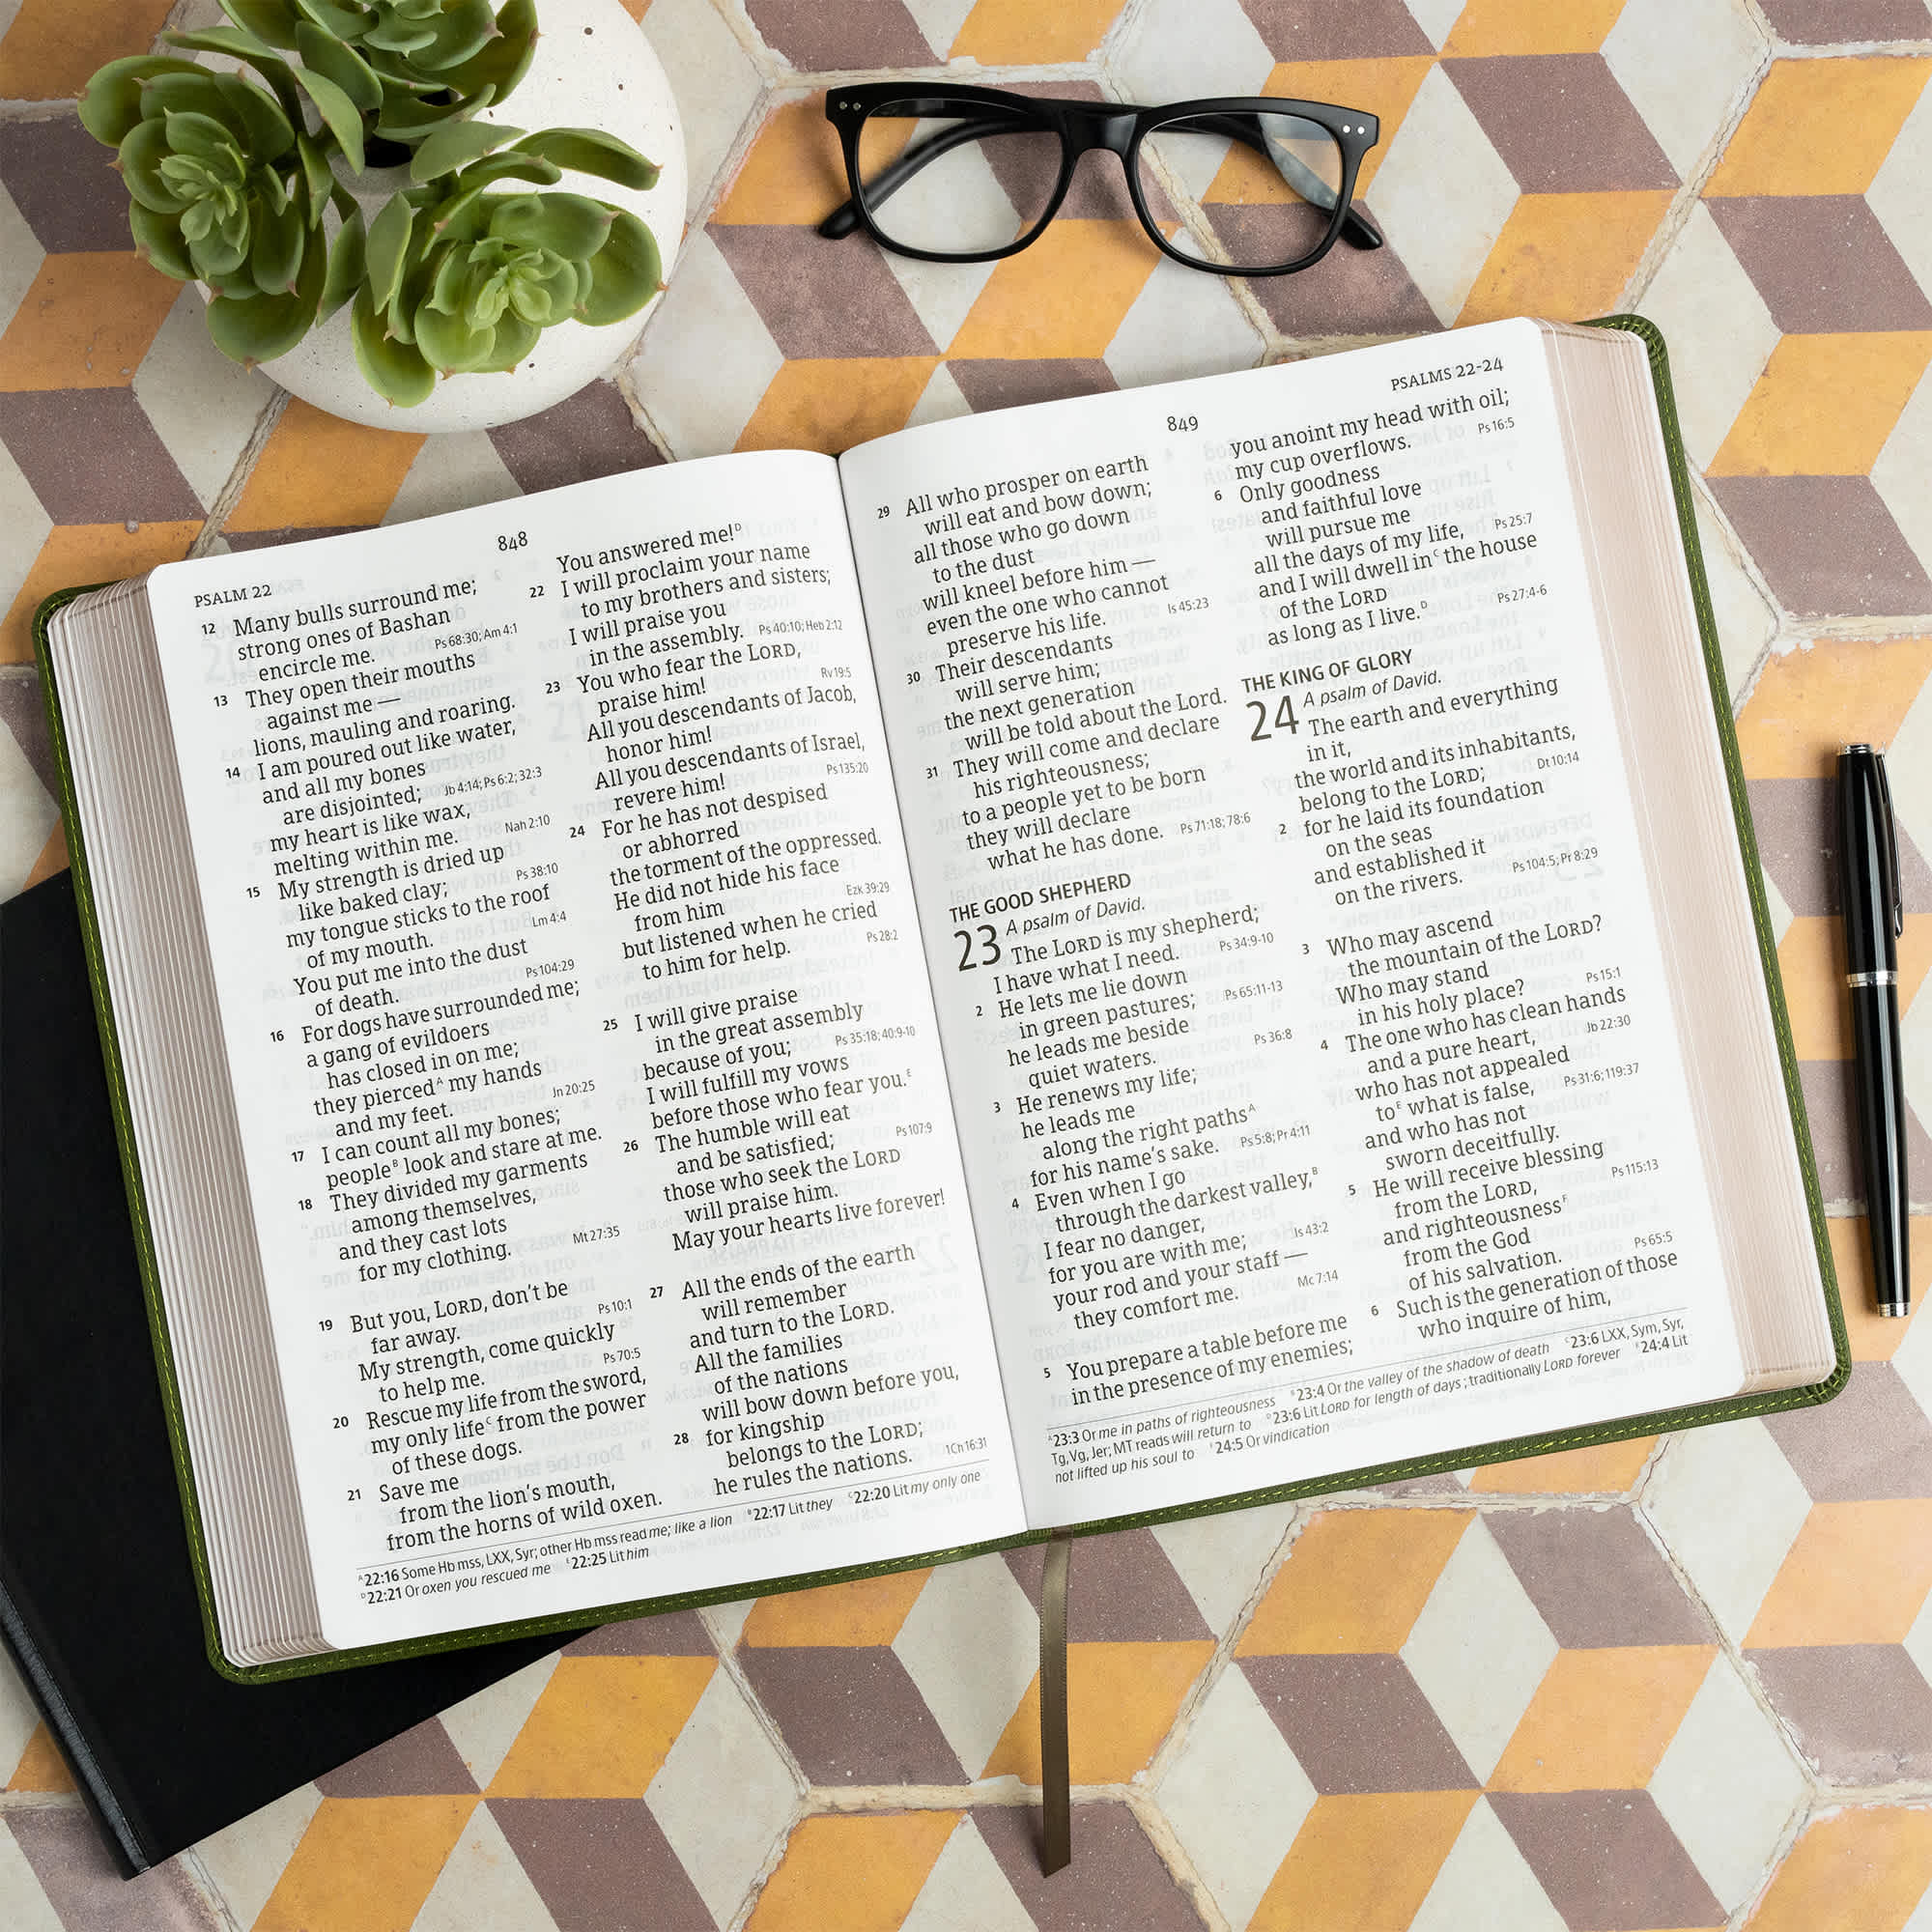 PSALM 22
848
12 Many bulls surround me;
strong ones of Bashan
encircle me. Ps 68:30; Am 4:1
13 They open their mouths
against me —
lions, mauling and roaring.
14 I am poured out like water,
and all my bones
are disjointed; Jb 4:14; Ps 6:2; 32:3
my heart is like wax,
melting within me. Nah 2:10
15 My strength is dried up
like baked clay; Ps 38:10
my tongue sticks to the roof
of my mouth. Lm 4:4
You put me into the dust
of death. Ps 104:29
16 For dogs have surrounded me;
a gang of evildoers
has closed in on me;
they pierced^A my hands
and my feet. Jn 20:25
17 I can count all my bones;
people^B look and stare at me.
18 They divided my garments
among themselves,
and they cast lots
for my clothing. Mt 27:35
19 But you, LORD, don't be
far away. Ps 10:1
My strength, come quickly
to help me. Ps 70:5
20 Rescue my life from the sword,
my only life^C from the power
of these dogs.
21 Save me
from the lion's mouth,
from the horns of wild oxen.
You answered me!^D
22 I will proclaim your name
to my brothers and sisters;
I will praise you
in the assembly. Ps 40:10; Heb 2:12
23 You who fear the LORD,
praise him! Rv 19:5
All you descendants of Jacob,
honor him!
All you descendants of Israel,
revere him! Ps 135:20
24 For he has not despised
or abhorred
the torment of the oppressed.
He did not hide his face
from him Ezk 39:29
but listened when he cried
to him for help. Ps 28:2
25 I will give praise
in the great assembly
because of you; Ps 35:18; 40:9-10
I will fulfill my vows
before those who fear you.^E
26 The humble will eat
and be satisfied; Ps 107:9
those who seek the LORD
will praise him.
May your hearts live forever!
27 All the ends of the earth
will remember
and turn to the LORD.
All the families
of the nations
will bow down before you,
28 for kingship
belongs to the LORD;
he rules the nations. 1Ch 16:31
^A 22:16 Some Hb mss, LXX, Syr; other Hb mss read me; like a lion ^B 22:17 Lit they ^C 22:20 Lit my only one
^D 22:21 Or oxen you rescued me ^E 22:25 Lit him
849
PSALMS 22-24
29 All who prosper on earth
will eat and bow down;
all those who go down
to the dust
will kneel before him —
even the one who cannot
preserve his life. Is 45:23
30 Their descendants
will serve him;
the next generation
will be told about the Lord.
31 They will come and declare
his righteousness;
to a people yet to be born
they will declare
what he has done. Ps 71:18; 78:6
THE GOOD SHEPHERD
23 A psalm of David.
The LORD is my shepherd;
I have what I need. Ps 34:9-10
2 He lets me lie down
in green pastures; Ps 65:11-13
he leads me beside
quiet waters. Ps 36:8
3 He renews my life;
he leads me
along the right paths^A
for his name's sake. Ps 5:8; Pr 4:11
4 Even when I go
through the darkest valley,^B
I fear no danger,
for you are with me; Is 43:2
your rod and your staff —
they comfort me. Mc 7:14
5 You prepare a table before me
in the presence of my enemies;
you anoint my head with oil;
my cup overflows. Ps 16:5
6 Only goodness
and faithful love
will pursue me
all the days of my life, Ps 25:7
and I will dwell in^C the house
of the LORD
as long as I live.^D Ps 27:4-6
THE KING OF GLORY
24 A psalm of David.
The earth and everything
in it,
the world and its inhabitants,
belong to the LORD; Dt 10:14
2 for he laid its foundation
on the seas
and established it
on the rivers. Ps 104:5; Pr 8:29
3 Who may ascend
the mountain of the LORD?
Who may stand
in his holy place? Ps 15:1
4 The one who has clean hands
and a pure heart, Jb 22:30
who has not appealed
to^E what is false,
and who has not Ps 31:6; 119:37
sworn deceitfully.
5 He will receive blessing
from the LORD, Ps 115:13
and righteousness^F
from the God
of his salvation. Ps 65:5
6 Such is the generation of those
who inquire of him,
^A 23:3 Or me in paths of righteousness ^B 23:4 Or the valley of the shadow of death ^C 23:6 LXX, Sym, Syr,
Tg, Vg, Jer; MT reads will return to ^D 23:6 Lit LORD for length of days; traditionally LORD forever ^E 24:4 Lit
not lifted up his soul to ^F 24:5 Or vindication